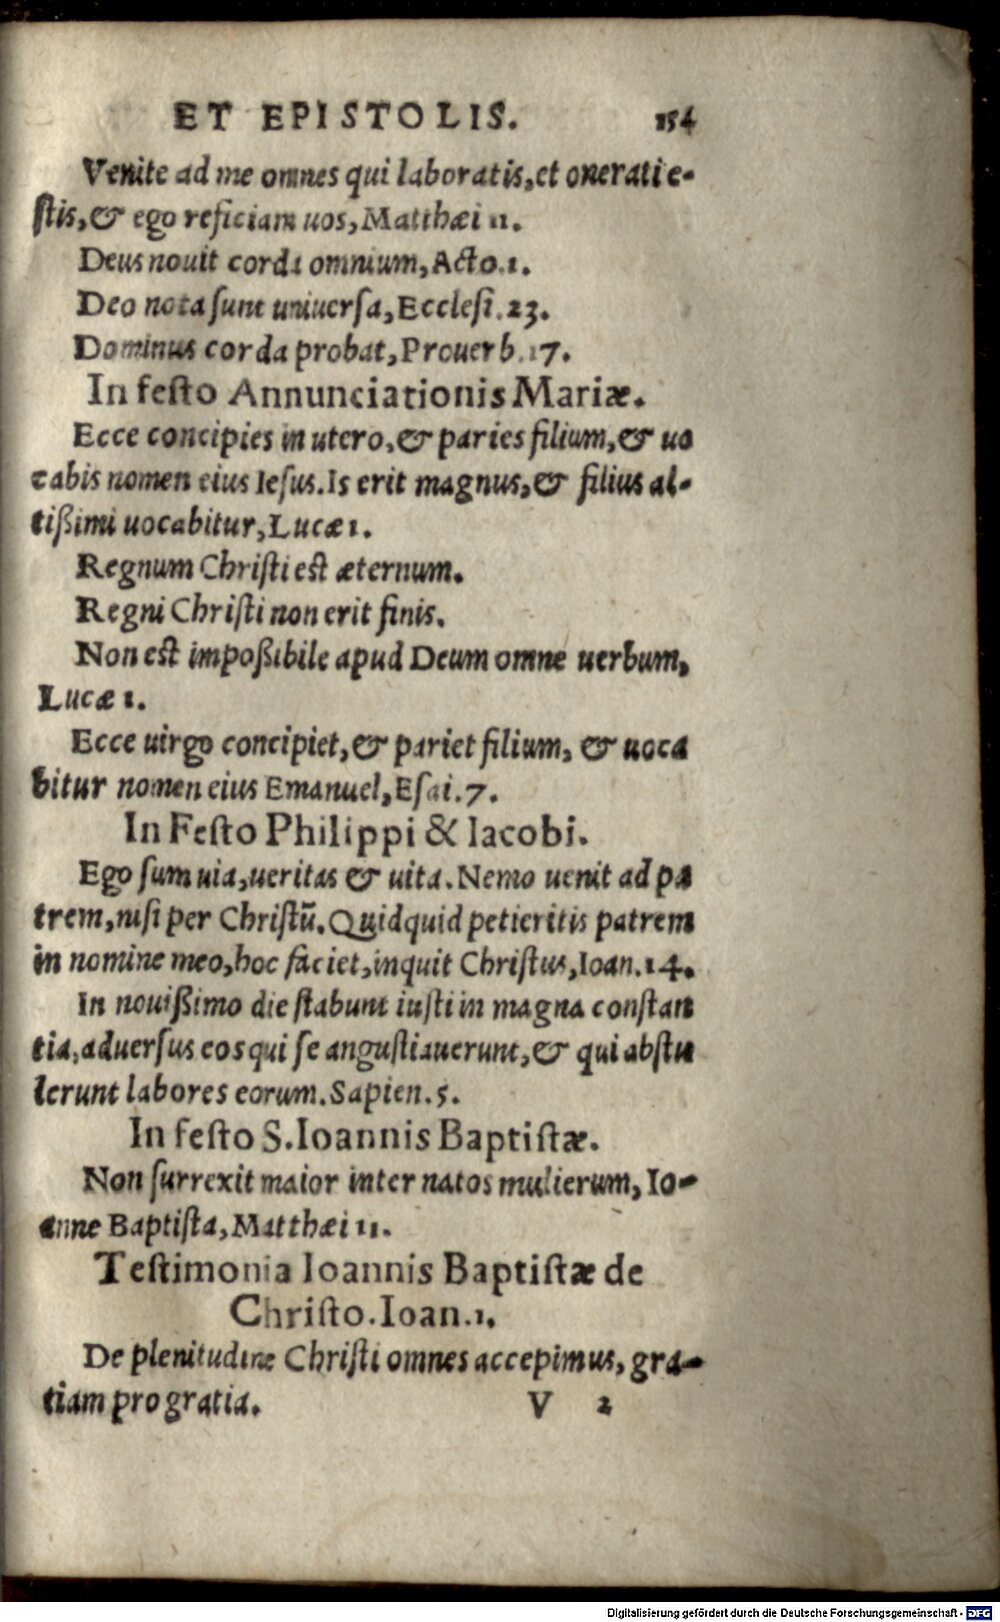 ET EPISTOLIS. 154
Venite ad me omnes qui laboratis, et onerati e-
stis, & ego reficiam uos, Matthæi 11.
Deus nouit corda omnium, Acto. 1.
Deo nota sunt uniuersa, Ecclesi. 23.
Dominus corda probat, Prouerb. 17.
In festo Annunciationis Mariæ.
Ecce concipies in utero, & paries filium, & uo
cabis nomen eius Iesus. Is erit magnus, & filius al-
tißimi uocabitur, Lucæ 1.
Regnum Christi est æternum.
Regni Christi non erit finis.
Non est impoßibile apud Deum omne uerbum,
Lucæ 1.
Ecce uirgo concipiet, & pariet filium, & uoca
bitur nomen eius Emanuel, Esai. 7.
In Festo Philippi & Iacobi.
Ego sum uia, ueritas & uita. Nemo uenit ad pa
trem, nisi per Christū. Quidquid petieritis patrem
in nomine meo, hoc faciet, inquit Christus, Ioan. 14.
In nouißimo die stabunt iusti in magna constan
tia, aduersus eos qui se angustiauerunt, & qui abstu
lerunt labores eorum. Sapien. 5.
In festo S. Ioannis Baptistæ.
Non surrexit maior inter natos mulierum, Io-
anne Baptista, Matthæi 11.
Testimonia Ioannis Baptistæ de
Christo. Ioan. 1.
De plenitudine Christi omnes accepimus, gra-
tiam pro gratia. V 2
Digitalisierung gefördert durch die Deutsche Forschungsgemeinschaft - DFG